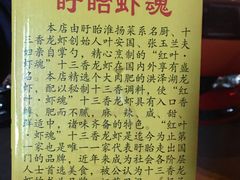 盱眙虾魂
本店由盱眙淮扬菜系名厨、十
三香龙虾创始人叶安国、张玉兰夫
妇亲自掌勺，精心烹制的“红叶
·虾魂”十三香龙虾在国内外享有盛
名。本店精选个大肉肥的洪泽湖龙
虾，配以秘制十三香调料，使“红
叶·虾魂”十三香龙虾具有入口香
鲜、肥而不腻，麻、辣、咸、甜、
群适中，诸味齐备的特色。“红叶
·虾魂”十三香龙虾是迄今为止第
一家也是唯一一家代表盱眙走出国
门的品牌，近年来成为社会各阶层
人士首选美食，被公认为十三香龙